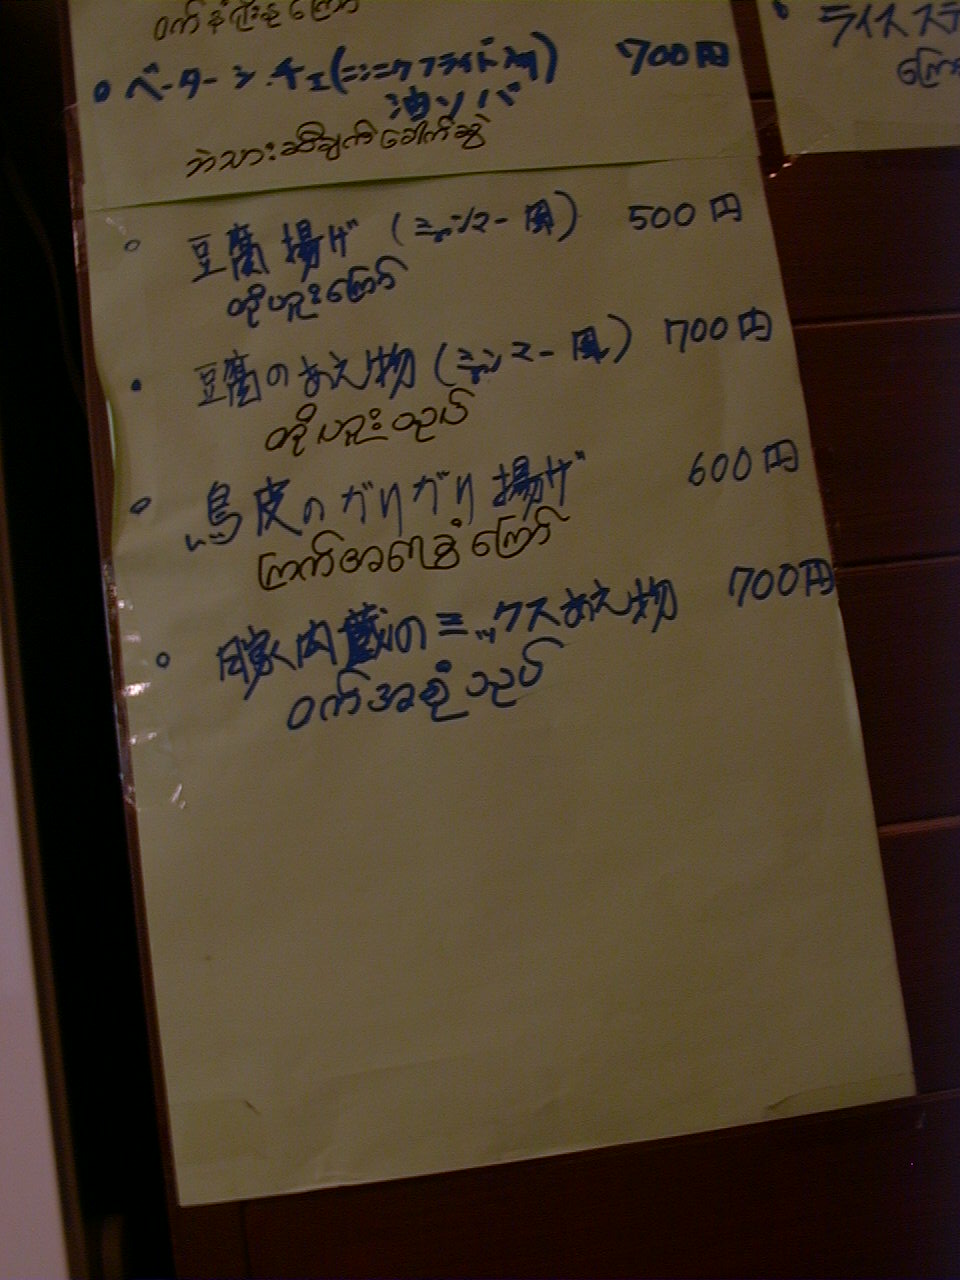 ဝက်နံရိုးနုကြော်
ベーターシチェ(ニンニクフライド入り) 700円
油ソバ
ဘဲသားဆီချက်ခေါက်ဆွဲ
豆腐揚げ (ミャンマー風) 500円
တိုဟူးကြော်
豆腐のあえ物 (ミャンマー風) 700円
တိုဟူးသုပ်
鳥皮のガリガリ揚げ 600円
ကြက်အရေခွံကြော်
豚内蔵のミックスあえ物 700円
ဝက်အစုံသုပ်
ライス